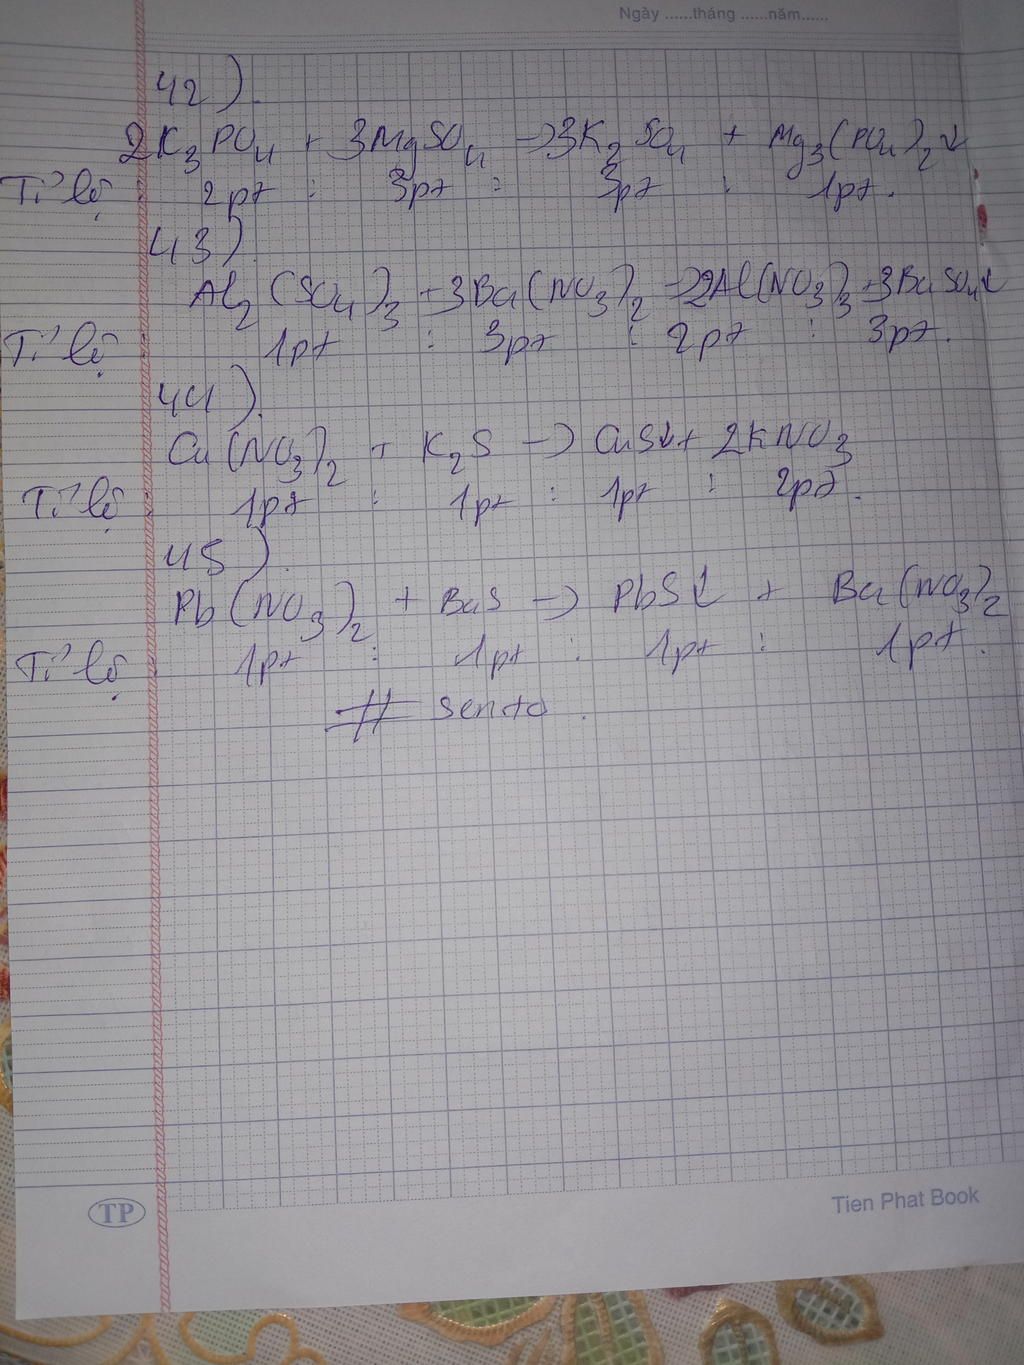 Ngày ......tháng ......năm......
42).
2K₃PO₄ + 3MgSO₄ → 3K₂SO₄ + Mg₃(PO₄)₂↓
Tỉ lệ : 2pt : 3pt : 3pt : 1pt.
43).
Al₂(SO₄)₃ + 3Ba(NO₃)₂ → 2Al(NO₃)₃ + 3BaSO₄↓
Tỉ lệ : 1pt : 3pt : 2pt : 3pt.
44).
Cu(NO₃)₂ + K₂S → CuS↓ + 2KNO₃
Tỉ lệ : 1pt : 1pt : 1pt : 2pt.
45).
Pb(NO₃)₂ + BaS → PbS↓ + Ba(NO₃)₂
Tỉ lệ : 1pt : 1pt : 1pt : 1pt.
# sento.
TP
Tien Phat Book